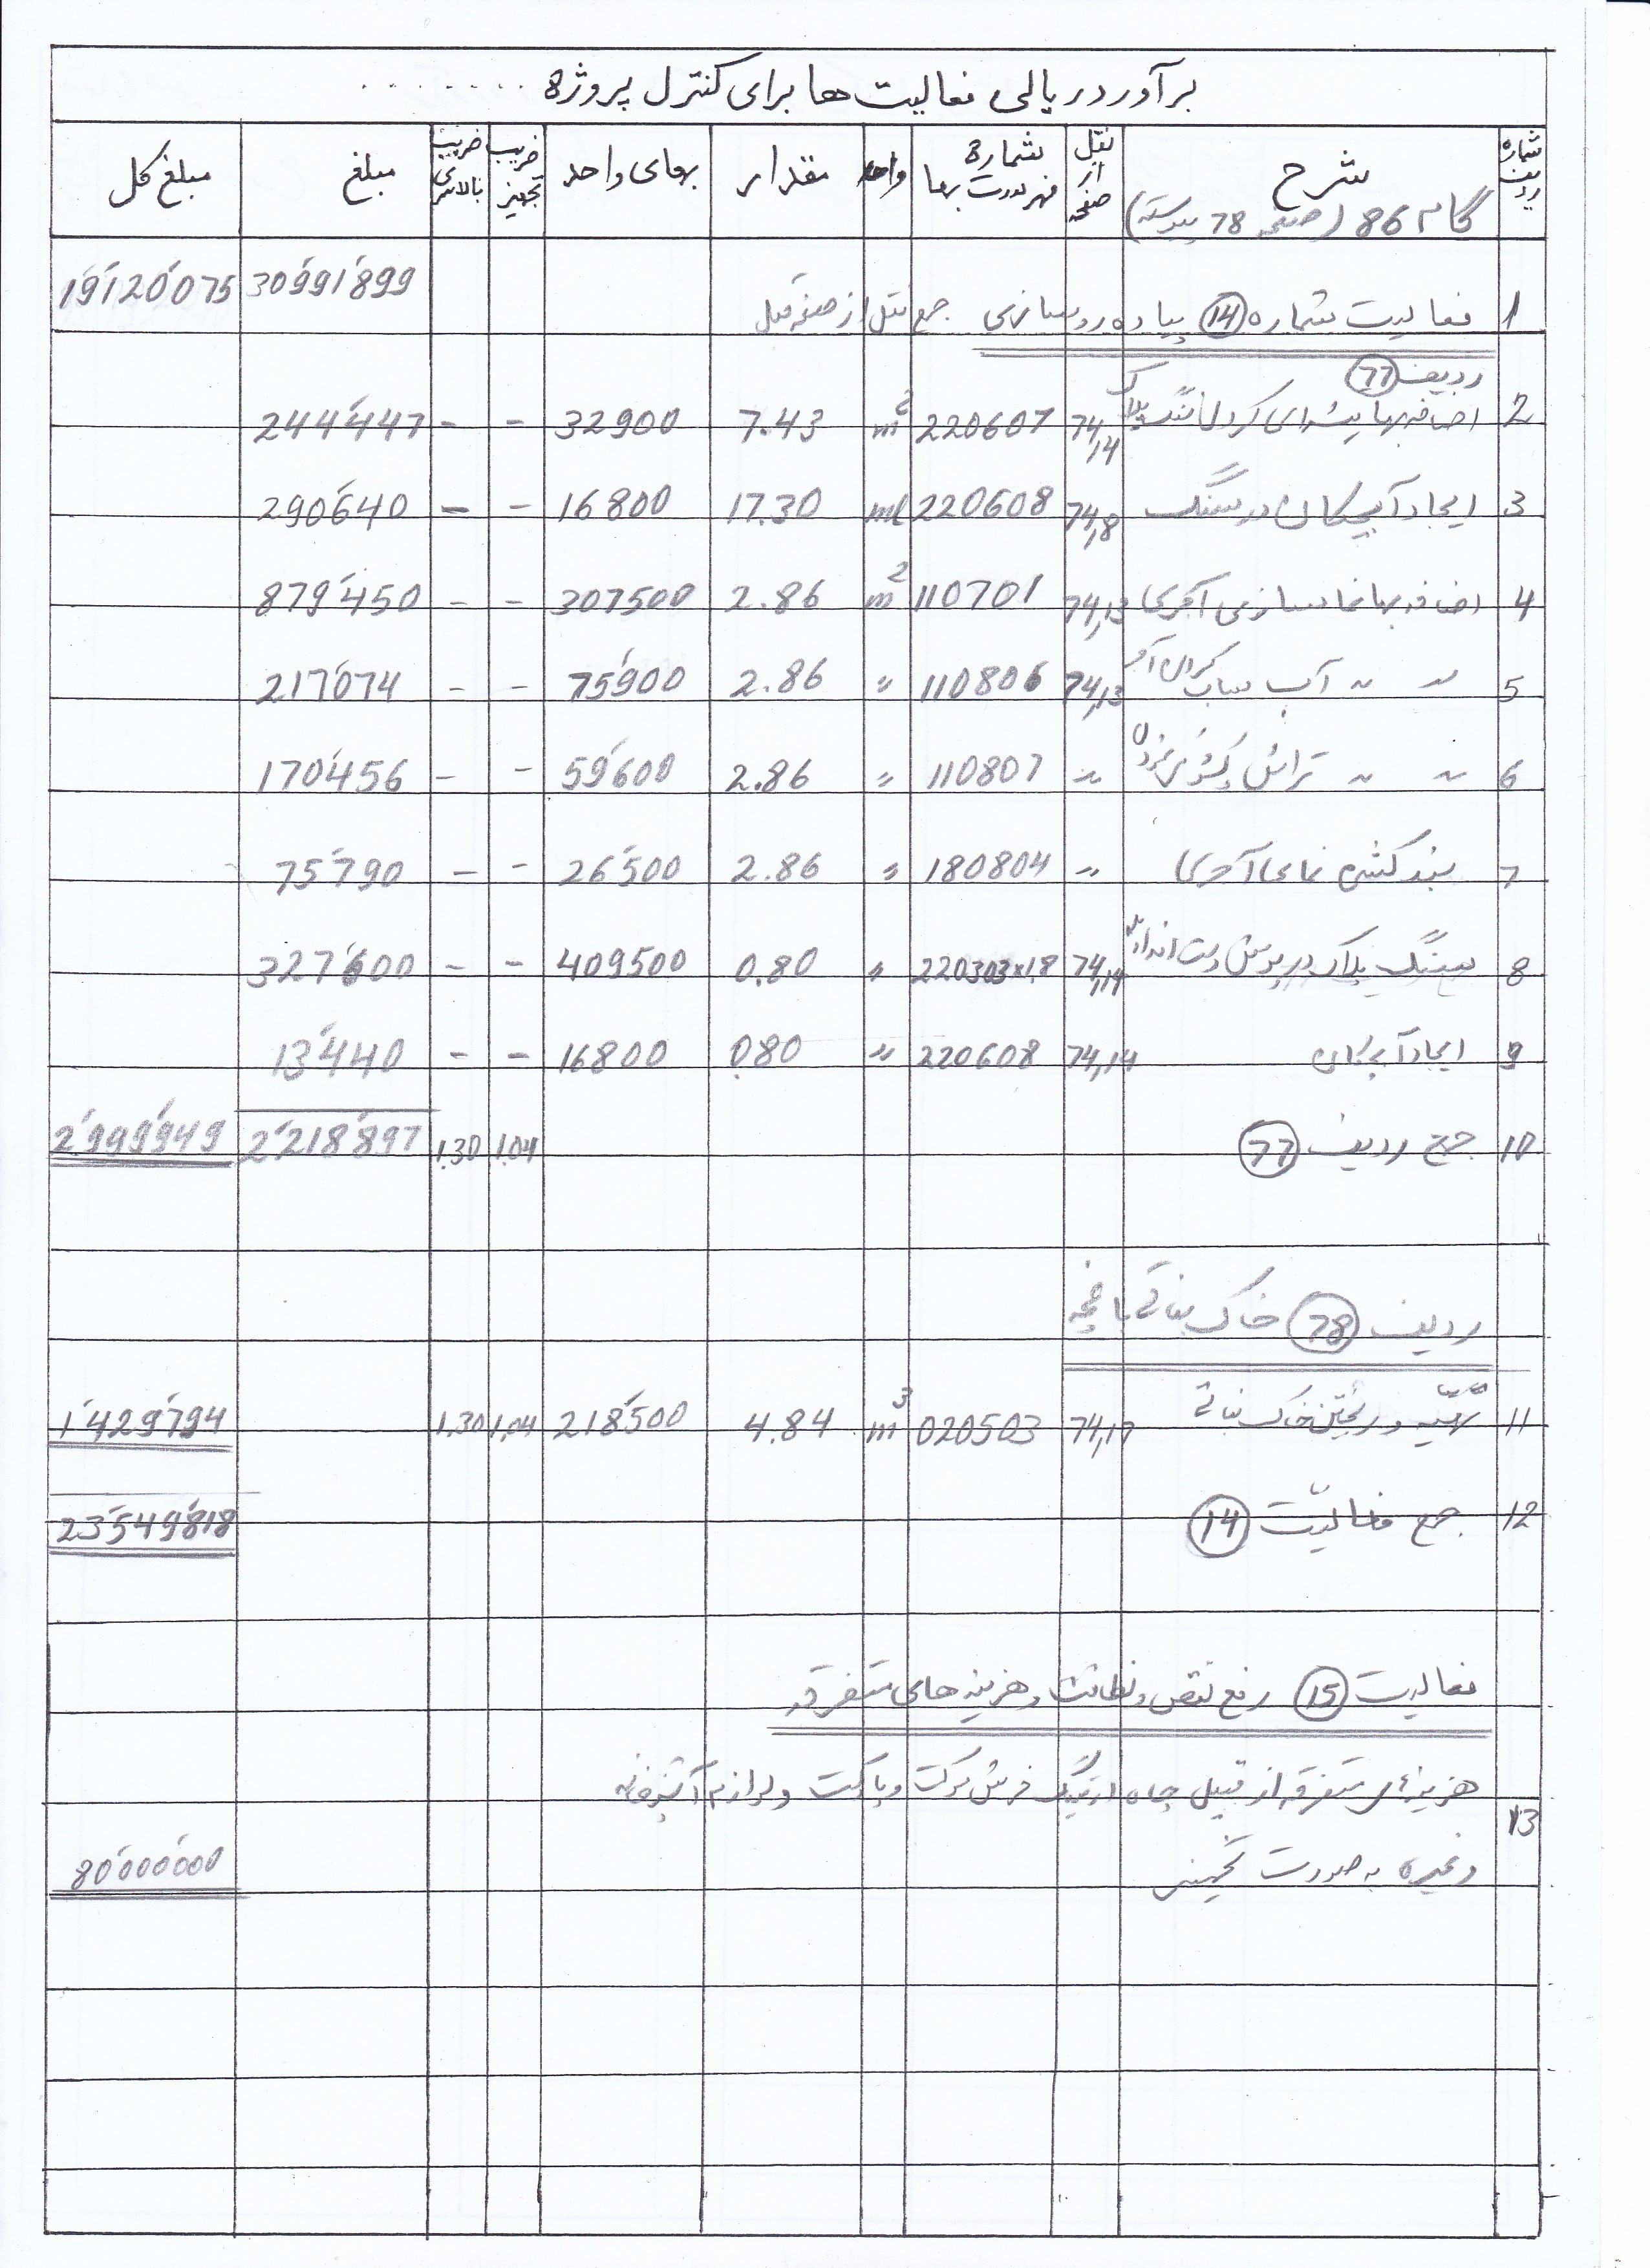 برآورد ریالی فعالیت ها برای کنترل پروژه ........
شماره ردیف شرح نقل از صفحه شماره فهرست بها واحد مقدار بهای واحد ضریب تجهیز ضریب بالاسری مبلغ مبلغ کل
گام 86 (صفحه 78 پیوسته)
1 فعالیت شماره 14 پیاده رو سازی جمع نقل از صفحه قبل 30'991'899 19'120'075
ردیف 77
2 اضافه بها بیشرای کردن سنگ پلاک 74,14 220607 m2 7.43 32900 - - 244'447
3 ایجاد آبچکان در سنگ 74,8 220608 ml 17.30 16800 - - 290'640
4 اضافه بها نماسازی آجری 74,13 110701 m2 2.86 307500 - - 879'450
5 〃 〃 آب ساب کردن آجر 74,13 110806 〃 2.86 75'900 - - 217'074
6 〃 〃 تراش 〃 110807 〃 2.86 59'600 - - 170'456
7 بندکشی نمای آجری 〃 180804 〃 2.86 26'500 - - 75'790
8 سنگ پلاک درپوش دست انداز 74,14 220303×1.8 〃 0.80 409500 - - 327'600
9 ایجاد آبچکان 74,14 220608 〃 0.80 16800 - - 13'440
10 جمع ردیف 77 1.04 1.30 2'218'897 2'999'949
ردیف 78 خاک نباتی باغچه
11 تهیه و ریختن خاک نباتی 74,17 020503 m3 4.84 218'500 1.04 1.30 1'429'794
12 جمع فعالیت 14 23'549'818
فعالیت 15 رفع نقص و نظافت و هزینه های متفرقه
13 هزینه های متفرقه از قبیل چاه ارتینگ فرش موکت و پارکت و لوازم آشپزخانه
و غیره به صورت تخمینی 80'000'000